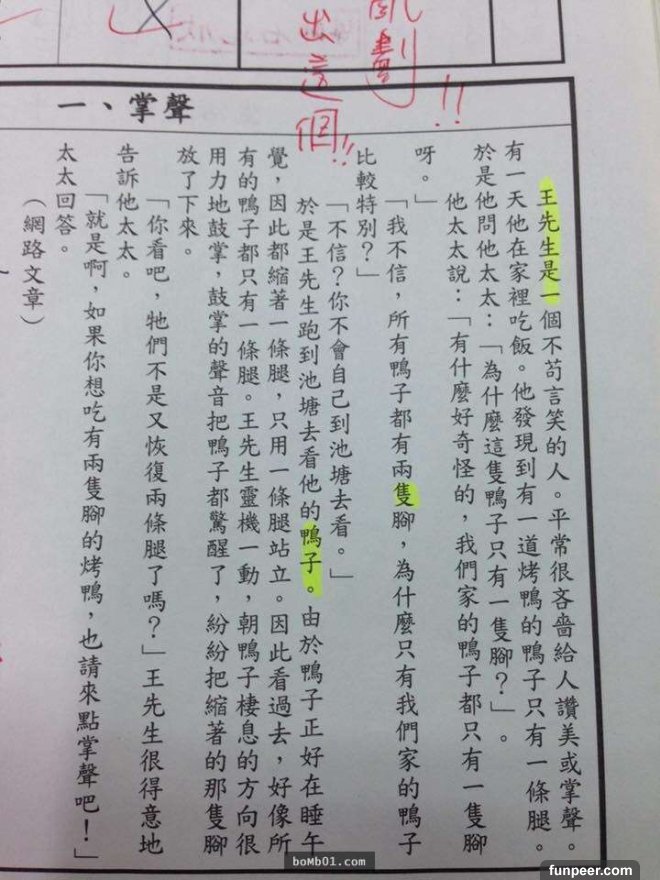 凱劃
!!
出這個!!
一、掌聲
王先生是一個不苟言笑的人。平常很吝嗇給人讚美或掌聲。
有一天他在家裡吃飯。他發現到有一道烤鴨的鴨子只有一條腿。
於是他問他太太：「為什麼這隻鴨子只有一隻腳？」。
他太太說：「有什麼好奇怪的，我們家的鴨子都只有一隻腳
呀。」
「我不信，所有鴨子都有兩隻腳，為什麼只有我們家的鴨子
比較特別？」
「不信？你不會自己到池塘去看。」
於是王先生跑到池塘去看他的鴨子。由於鴨子正好在睡午
覺，因此都縮著一條腿，只用一條腿站立。因此看過去，好像所
有的鴨子都只有一條腿。王先生靈機一動，朝鴨子棲息的方向很
用力地鼓掌，鼓掌的聲音把鴨子都驚醒了，紛紛把縮著的那隻腳
放了下來。
「你看吧，牠們不是又恢復兩條腿了嗎？」王先生很得意地
告訴他太太。
「就是啊，如果你想吃有兩隻腳的烤鴨，也請來點掌聲吧！」
太太回答。
（網路文章）
boMb01.com
funpeer.com